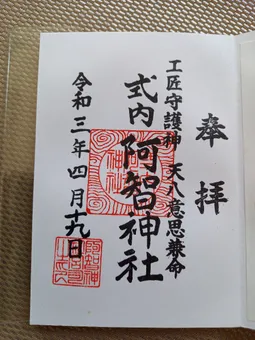 奉拝
工匠守護神 天八意思兼命
式内 阿智神社
令和三年四月十九日